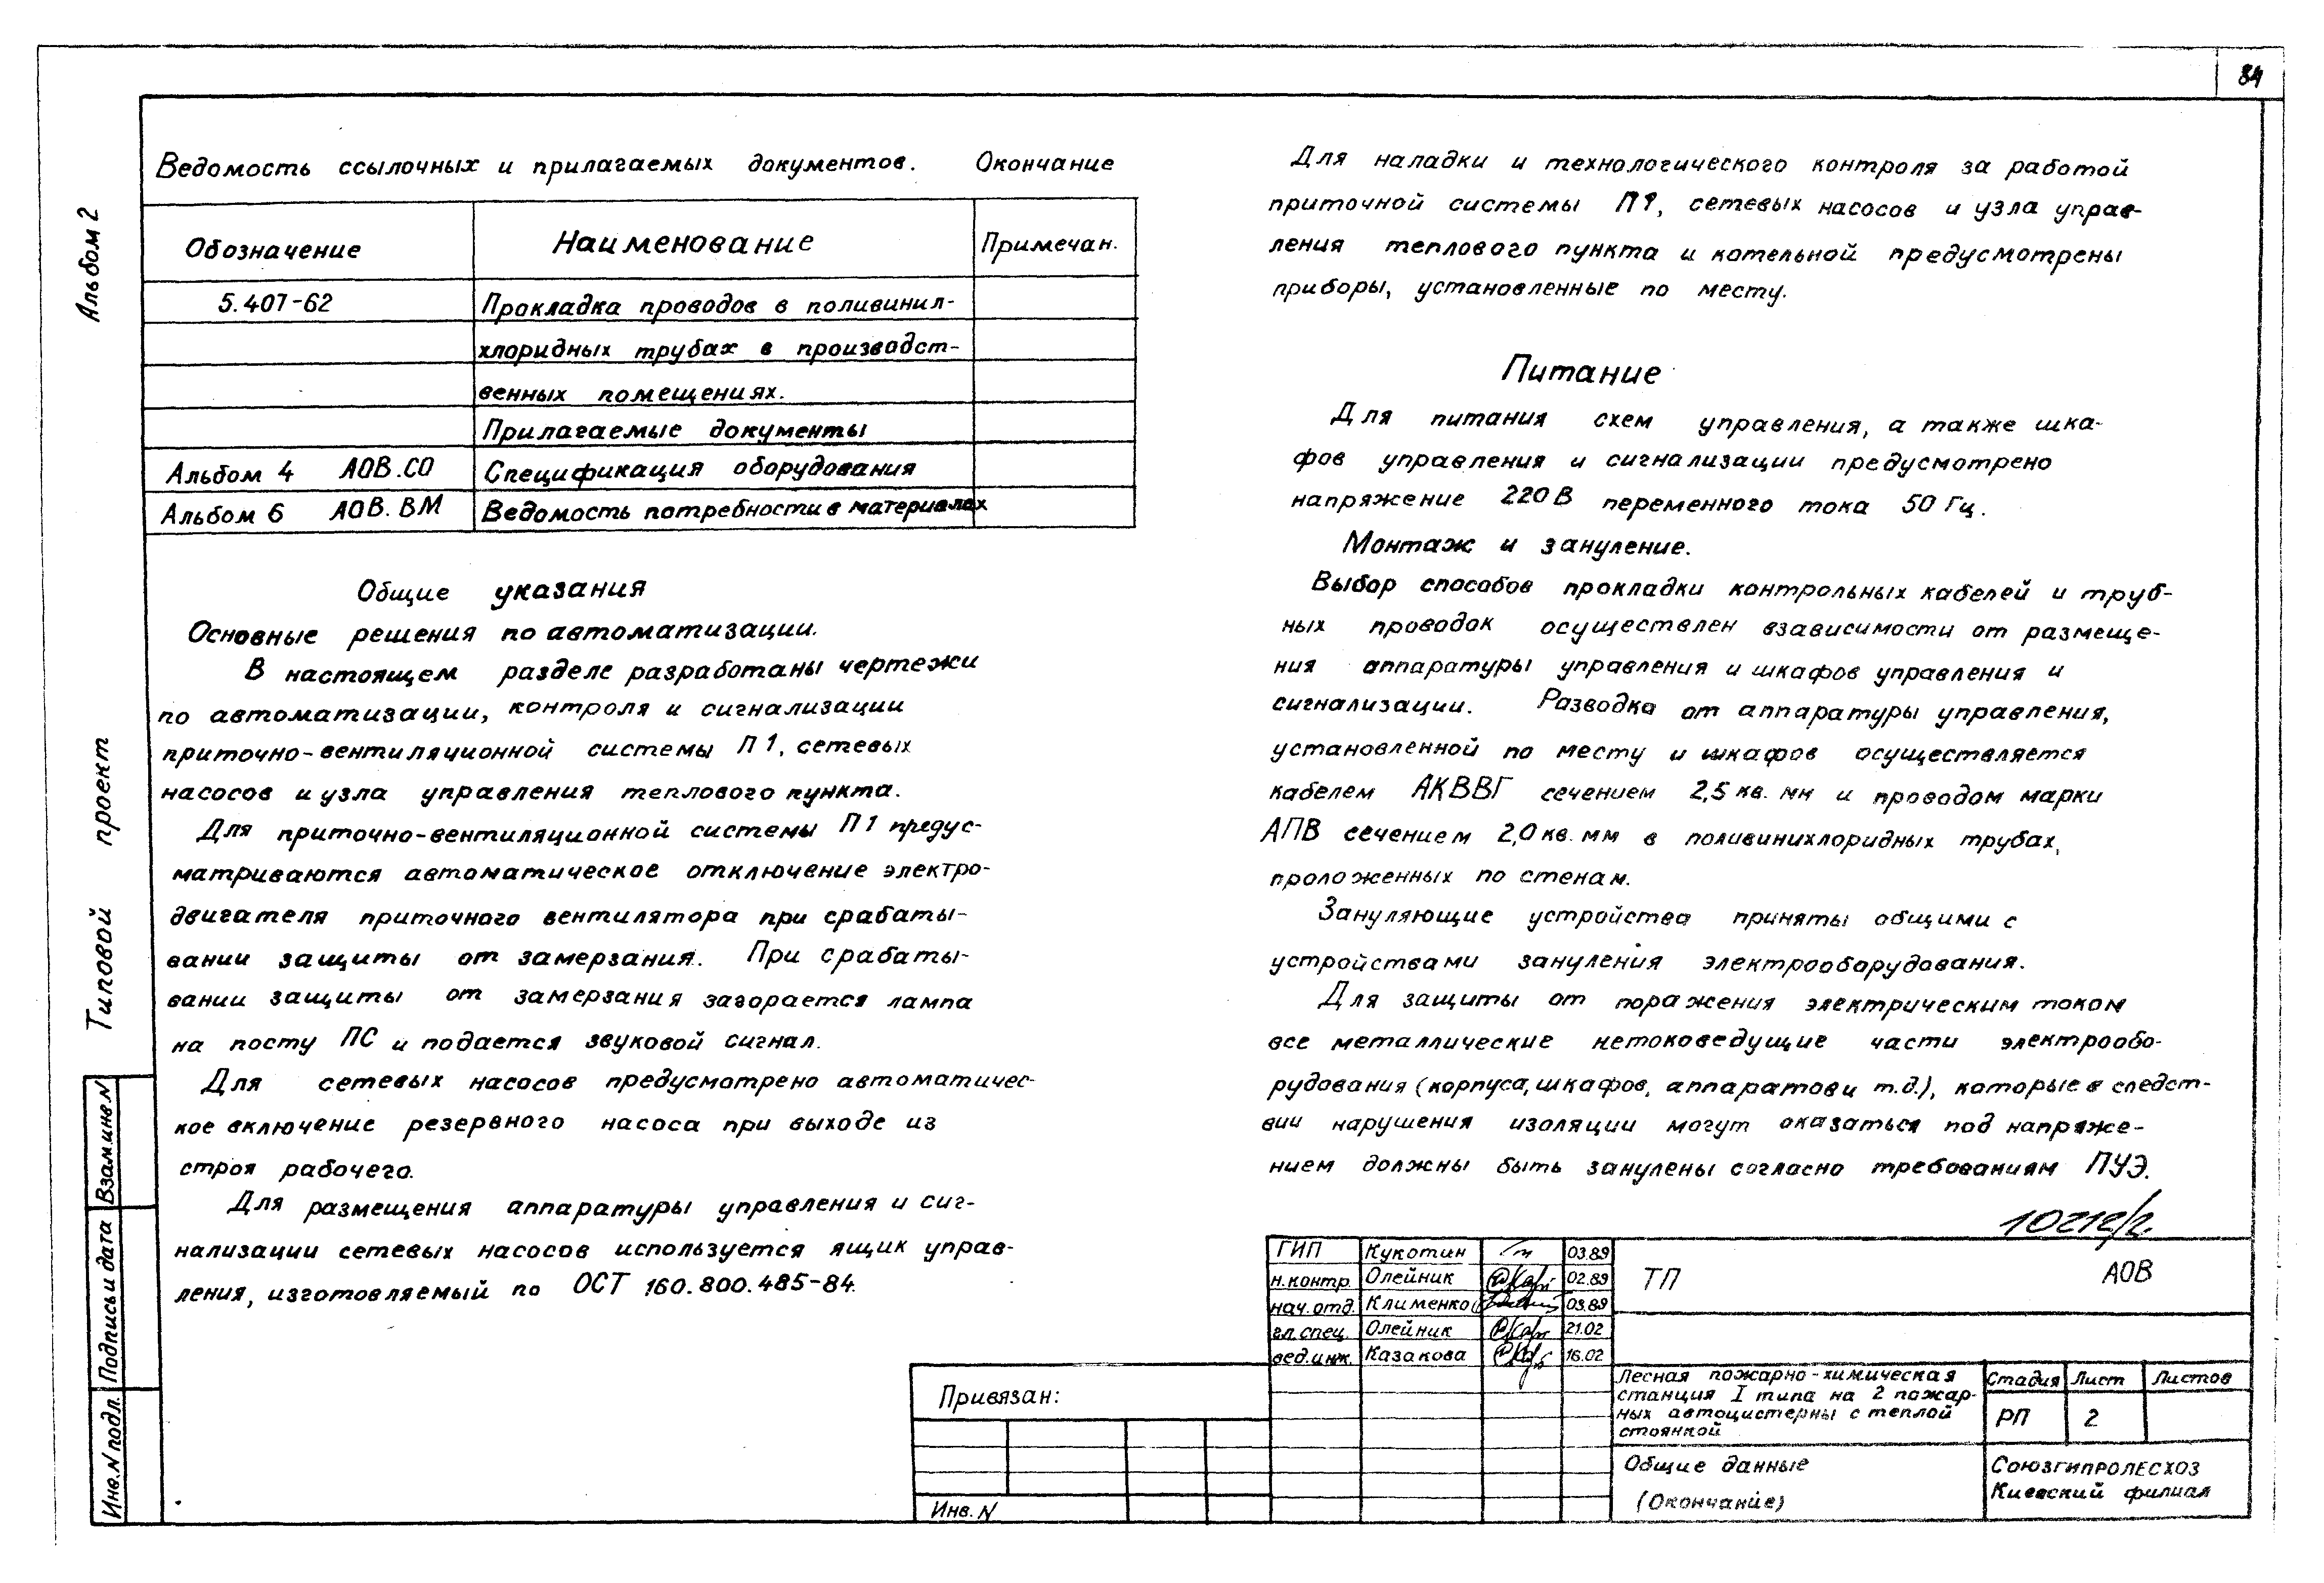 84
Альбом 2
Типовой проект
Взам.инв.N
Подпись и дата
Инв.N подл.
Ведомость ссылочных и прилагаемых документов. Окончание
Обозначение Наименование Примечан.
5.407-62 Прокладка проводов в поливинил-
хлоридных трубах в производст-
венных помещениях.
Прилагаемые документы
Альбом 4 АОВ.СО Спецификация оборудования
Альбом 6 АОВ.ВМ Ведомость потребности в материалах
Общие указания
Основные решения по автоматизации.
В настоящем разделе разработаны чертежи
по автоматизации, контроля и сигнализации
приточно-вентиляционной системы П1, сетевых
насосов и узла управления теплового пункта.
Для приточно-вентиляционной системы П1 предус-
матриваются автоматическое отключение электро-
двигателя приточного вентилятора при срабаты-
вании защиты от замерзания. При срабаты-
вании защиты от замерзания загорается лампа
на посту ПС и подается звуковой сигнал.
Для сетевых насосов предусмотрено автоматичес-
кое включение резервного насоса при выходе из
строя рабочего.
Для размещения аппаратуры управления и сиг-
нализации сетевых насосов используется ящик управ-
ления, изготовляемый по ОСТ 160.800.485-84.
Для наладки и технологического контроля за работой
приточной системы П1, сетевых насосов и узла управ-
ления теплового пункта и котельной предусмотрены
приборы, установленные по месту.
Питание
Для питания схем управления, а также шка-
фов управления и сигнализации предусмотрено
напряжение 220В переменного тока 50 Гц.
Монтаж и зануление.
Выбор способов прокладки контрольных кабелей и труб-
ных проводок осуществлен взависимости от размеще-
ния аппаратуры управления и шкафов управления и
сигнализации. Разводка от аппаратуры управления,
установленной по месту и шкафов осуществляется
кабелем АКВВГ сечением 2,5 кв. мм и проводом марки
АПВ сечением 2,0 кв. мм в поливинихлоридных трубах,
проложенных по стенам.
Зануляющие устройства приняты общими с
устройствами зануления электрооборудования.
Для защиты от поражения электрическим током
все металлические нетоковедущие части электрообо-
рудования (корпуса, шкафов, аппаратов и т.д.), которые в следст-
вии нарушения изоляции могут оказаться под напряже-
нием должны быть занулены согласно требованиям ПУЭ.
10212/2
ГИП Кукотин 03.89
н.контр. Олейник 02.89
нач.отд. Клименко 03.89
гл.спец. Олейник 21.02
вед.инж. Казакова 16.02
ТП АОВ
Лесная пожарно-химическая
станция I типа на 2 пожар-
ных автоцистерны с теплой
стоянкой
Стадия Лист Листов
РП 2
Общие данные
(Окончание)
Союзгипролесхоз
Киевский филиал
Привязан:
Инв. N